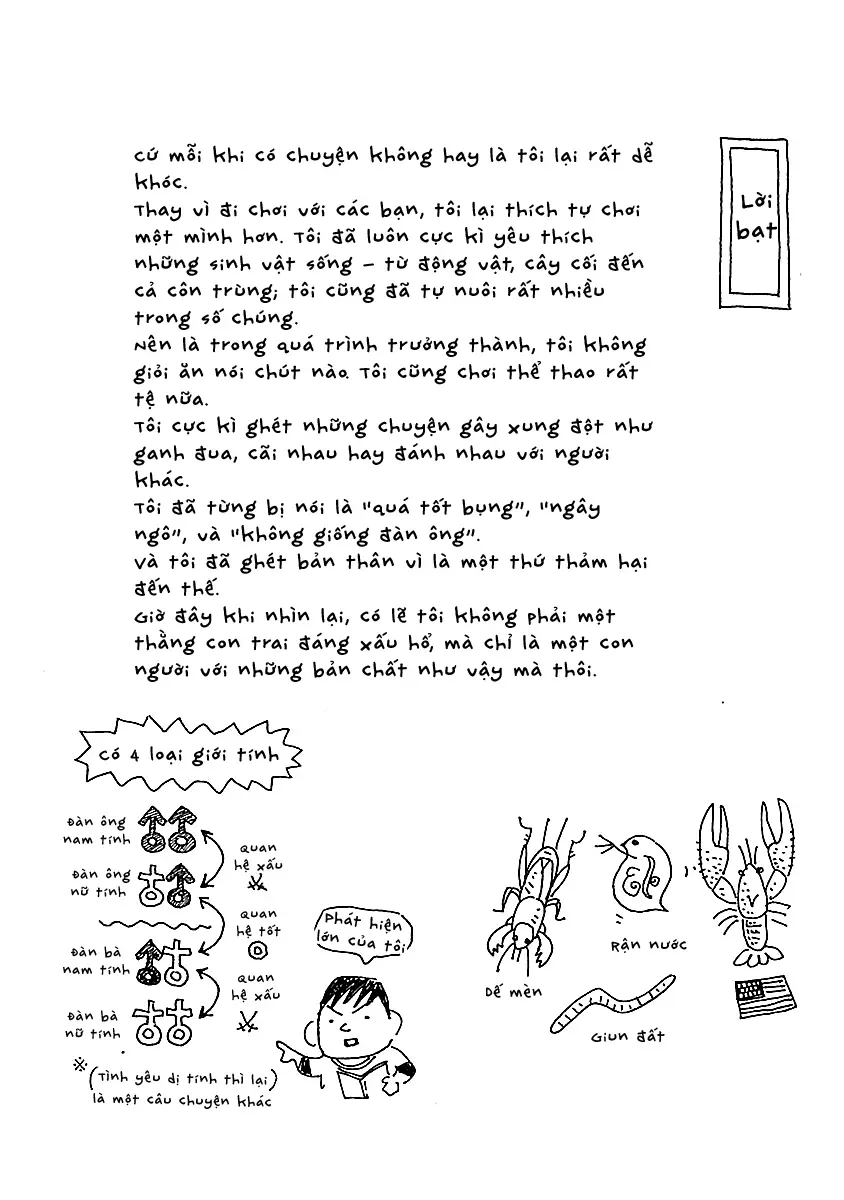 Lời
bạt
cứ mỗi khi có chuyện không hay là tôi lại rất dễ
khóc.
Thay vì đi chơi với các bạn, tôi lại thích tự chơi
một mình hơn. Tôi đã luôn cực kì yêu thích
những sinh vật sống – từ động vật, cây cối đến
cả côn trùng; tôi cũng đã tự nuôi rất nhiều
trong số chúng.
Nên là trong quá trình trưởng thành, tôi không
giỏi ăn nói chút nào. Tôi cũng chơi thể thao rất
tệ nữa.
Tôi cực kì ghét những chuyện gây xung đột như
ganh đua, cãi nhau hay đánh nhau với người
khác.
Tôi đã từng bị nói là "quá tốt bụng", "ngây
ngô", và "không giống đàn ông".
Và tôi đã ghét bản thân vì là một thứ thảm hại
đến thế.
Giờ đây khi nhìn lại, có lẽ tôi không phải một
thằng con trai đáng xấu hổ, mà chỉ là một con
người với những bản chất như vậy mà thôi.
Có 4 loại giới tính
Đàn ông
nam tính
Đàn ông
nữ tính
Đàn bà
nam tính
Đàn bà
nữ tính
Quan
hệ xấu
Quan
hệ tốt
Quan
hệ xấu
※ (Tình yêu dị tính thì lại)
là một câu chuyện khác
Phát hiện
lớn của tôi
Dế mèn
Rận nước
Giun đất